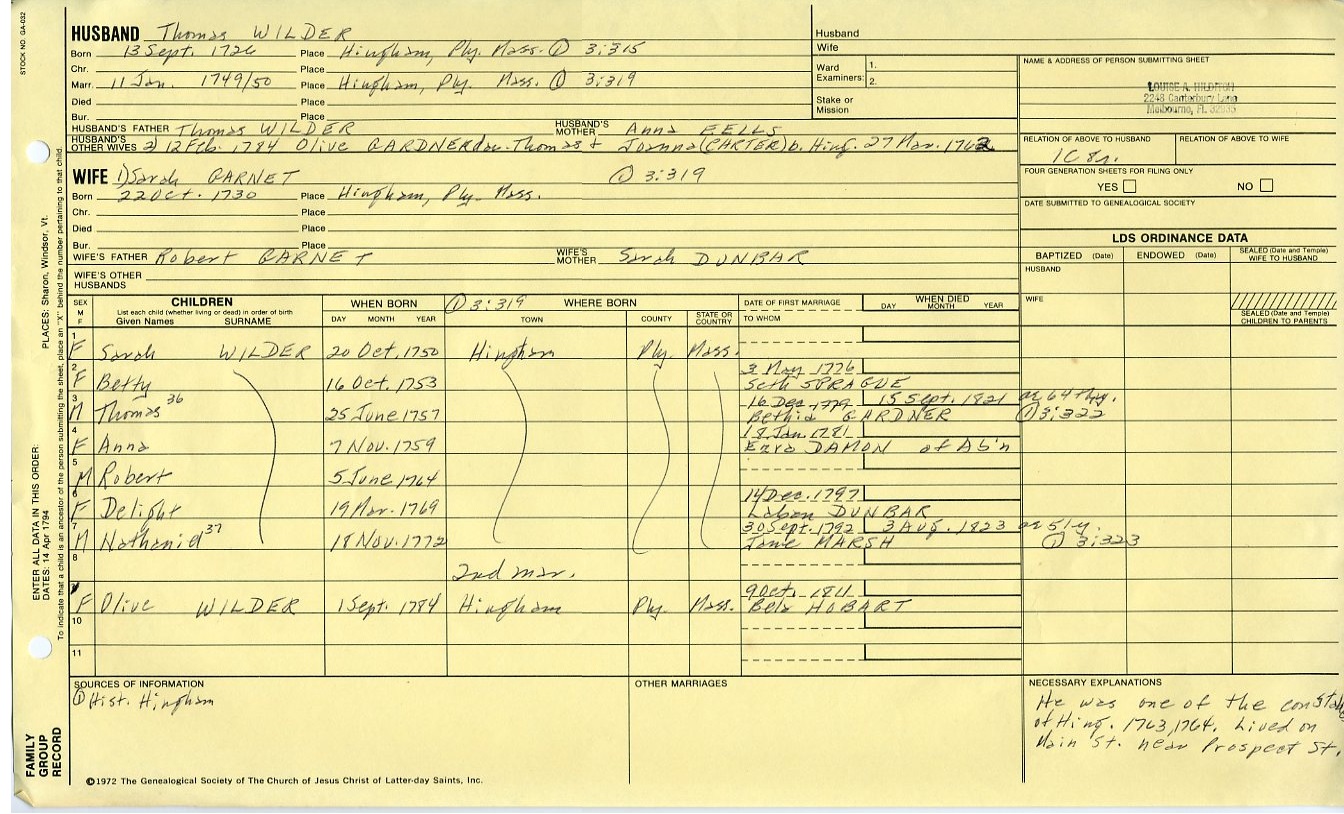 STOCK NO. GA-032
HUSBAND Thomas WILDER
Born 13 Sept. 1726 Place Hingham, Ply. Mass. ① 3:315
Chr. Place
Marr. 11 Jan. 1749/50 Place Hingham, Ply. Mass. ① 3:319
Died Place
Bur. Place
HUSBAND'S FATHER Thomas WILDER HUSBAND'S MOTHER Anna EELLS
HUSBAND'S OTHER WIVES 2) 12 Feb. 1784 Olive GARDNER dau. Thomas & Joanna (CARTER) b. Hing. 27 Mar. 1762
WIFE 1) Sarah GARNET ① 3:319
Born 22 Oct. 1730 Place Hingham, Ply. Mass.
Chr. Place
Died Place
Bur. Place
WIFE'S FATHER Robert GARNET WIFE'S MOTHER Sarah DUNBAR
WIFE'S OTHER HUSBANDS
Husband
Wife
Ward Examiners: 1.
2.
Stake or Mission
NAME & ADDRESS OF PERSON SUBMITTING SHEET
LOUISE A. HILDITCH
2248 Canterbury Lane
Melbourne, FL 32935
RELATION OF ABOVE TO HUSBAND RELATION OF ABOVE TO WIFE
1C 8r.
FOUR GENERATION SHEETS FOR FILING ONLY
YES NO
DATE SUBMITTED TO GENEALOGICAL SOCIETY
LDS ORDINANCE DATA
BAPTIZED (Date) ENDOWED (Date) SEALED (Date and Temple) WIFE TO HUSBAND
HUSBAND
WIFE
SEALED (Date and Temple) CHILDREN TO PARENTS
SEX M F CHILDREN WHEN BORN ① 3:319 WHERE BORN DATE OF FIRST MARRIAGE WHEN DIED
List each child (whether living or dead) in order of birth
Given Names SURNAME DAY MONTH YEAR TOWN COUNTY STATE OR COUNTRY TO WHOM DAY MONTH YEAR
1 F Sarah WILDER 20 Oct. 1750 Hingham Ply. Mass.
2 3 May 1776
F Betty 16 Oct. 1753 Seth SPRAGUE
3 16 Dec. 1779 15 Sept. 1821 ae 64thy.
M Thomas 36 25 June 1757 Bethia GARDNER ① 3:322
4 18 Jan. 1781
F Anna 7 Nov. 1759 Ezra DAMON of Ab'n
5 M Robert 5 June 1764
6 14 Dec. 1797
F Delight 19 Mar. 1769 Laban DUNBAR
7 30 Sept. 1792 3 Aug. 1823 ae 51y.
M Nathaniel 37 18 Nov. 1772 Jane MARSH ① 3:323
8 2nd mar.
9 9 Oct. 1811
F Olive WILDER 1 Sept. 1784 Hingham Ply. Mass. Bela HOBART
10
11
SOURCES OF INFORMATION
① Hist. Hingham
OTHER MARRIAGES
NECESSARY EXPLANATIONS
He was one of the constables
of Hing. 1763, 1764. Lived on
Main St. near Prospect St.
©1972 The Genealogical Society of The Church of Jesus Christ of Latter-day Saints, Inc.
FAMILY GROUP RECORD
ENTER ALL DATA IN THIS ORDER:
DATES: 14 Apr 1794 PLACES: Sharon, Windsor, Vt.
To indicate that a child is an ancestor of the person submitting the sheet, place an "X" behind the number pertaining to that child.